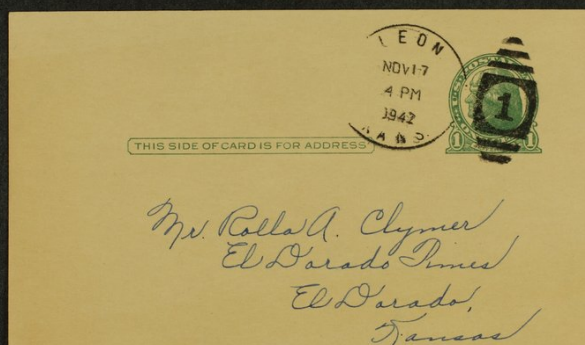 LEON
NOV 17
4 PM
1942
KANS.
1
1 1
THIS SIDE OF CARD IS FOR ADDRESS
Mr. Rolla A. Clymer
El Dorado Times
El Dorado,
Kansas